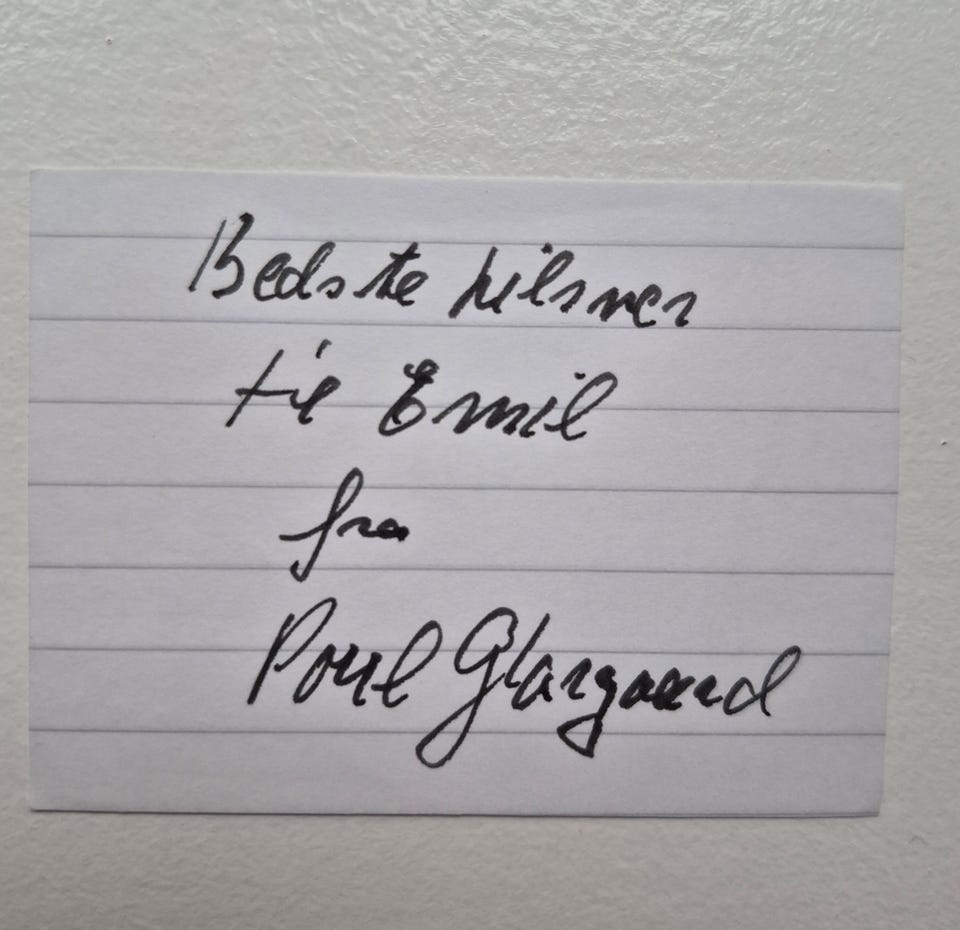 Bedste hilsner
til Emil
fra
Poul Glargaard